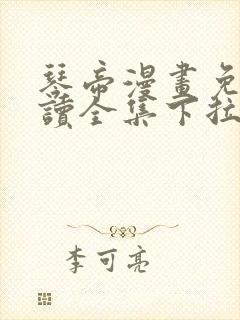 琴帝漫畫免
讀全集下拉
李可亮